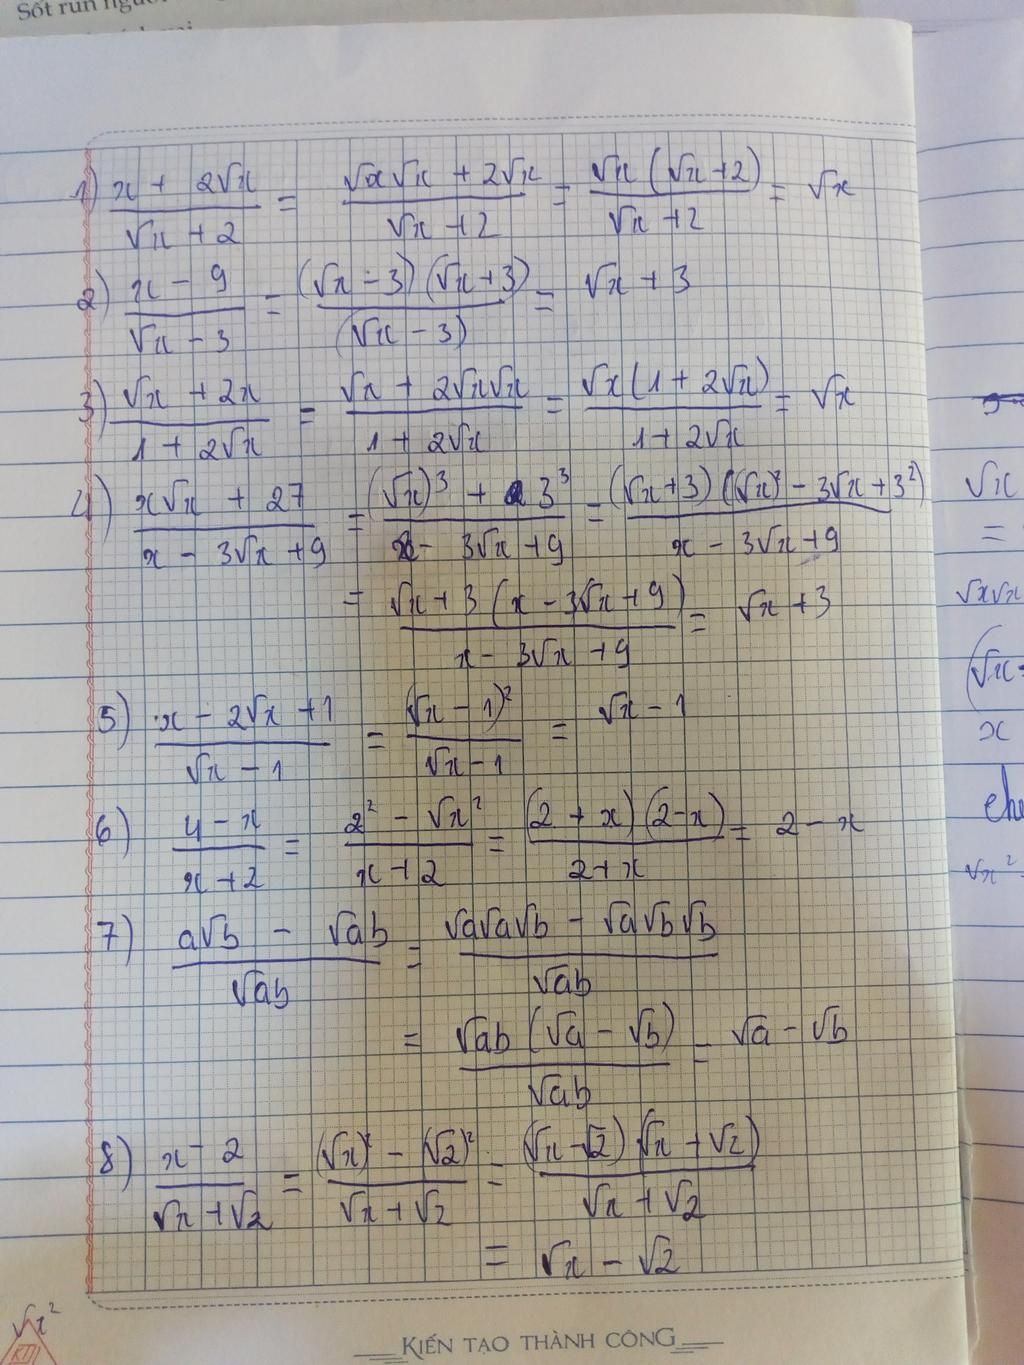 Sốt run
1) (x + 2√x)/(√x + 2) = (√x√x + 2√x)/(√x + 2) = (√x (√x + 2))/(√x + 2) = √x
2) (x - 9)/(√x - 3) = ((√x - 3)(√x + 3))/((√x - 3)) = √x + 3
3) (√x + 2x)/(1 + 2√x) = (√x + 2√x√x)/(1 + 2√x) = (√x(1 + 2√x))/(1 + 2√x) = √x
4) (x√x + 27)/(x - 3√x + 9) = ((√x)³ + 3³)/(x - 3√x + 9) = ((√x + 3)((√x)² - 3√x + 3²))/(x - 3√x + 9)
= (√x + 3 (x - 3√x + 9))/(x - 3√x + 9) = √x + 3
5) (x - 2√x + 1)/(√x - 1) = (√x - 1)²/(√x - 1) = √x - 1
6) (4 - x)/(x + 2) = (2² - √x²)/(x + 2) = ((2 + x)(2 - x))/(2 + x) = 2 - x
7) (a√b - √ab)/(√ab) = (√a√a√b - √a√b√b)/(√ab)
= (√ab (√a - √b))/(√ab) = √a - √b
8) (x - 2)/(√x + √2) = ((√x)² - (√2)²)/(√x + √2) = ((√x - √2)(√x + √2))/(√x + √2)
= √x - √2
√x²
KIẾN TẠO THÀNH CÔNG
√x
=
√x√x
(√x
x
√x²